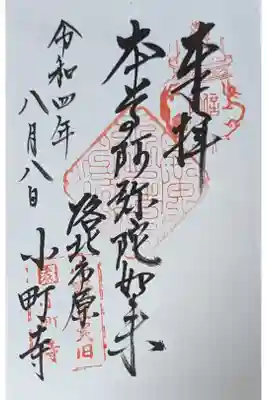 奉拝
本尊阿弥陀如来
洛北市原
小町寺
令和四年
八月八日